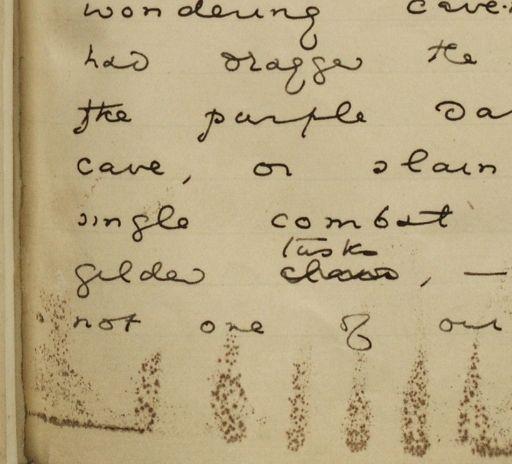 wondering cave-
had dragged the
the purple Da
cave, or slain
single combat
tusks
gilded claws, —
not one of our